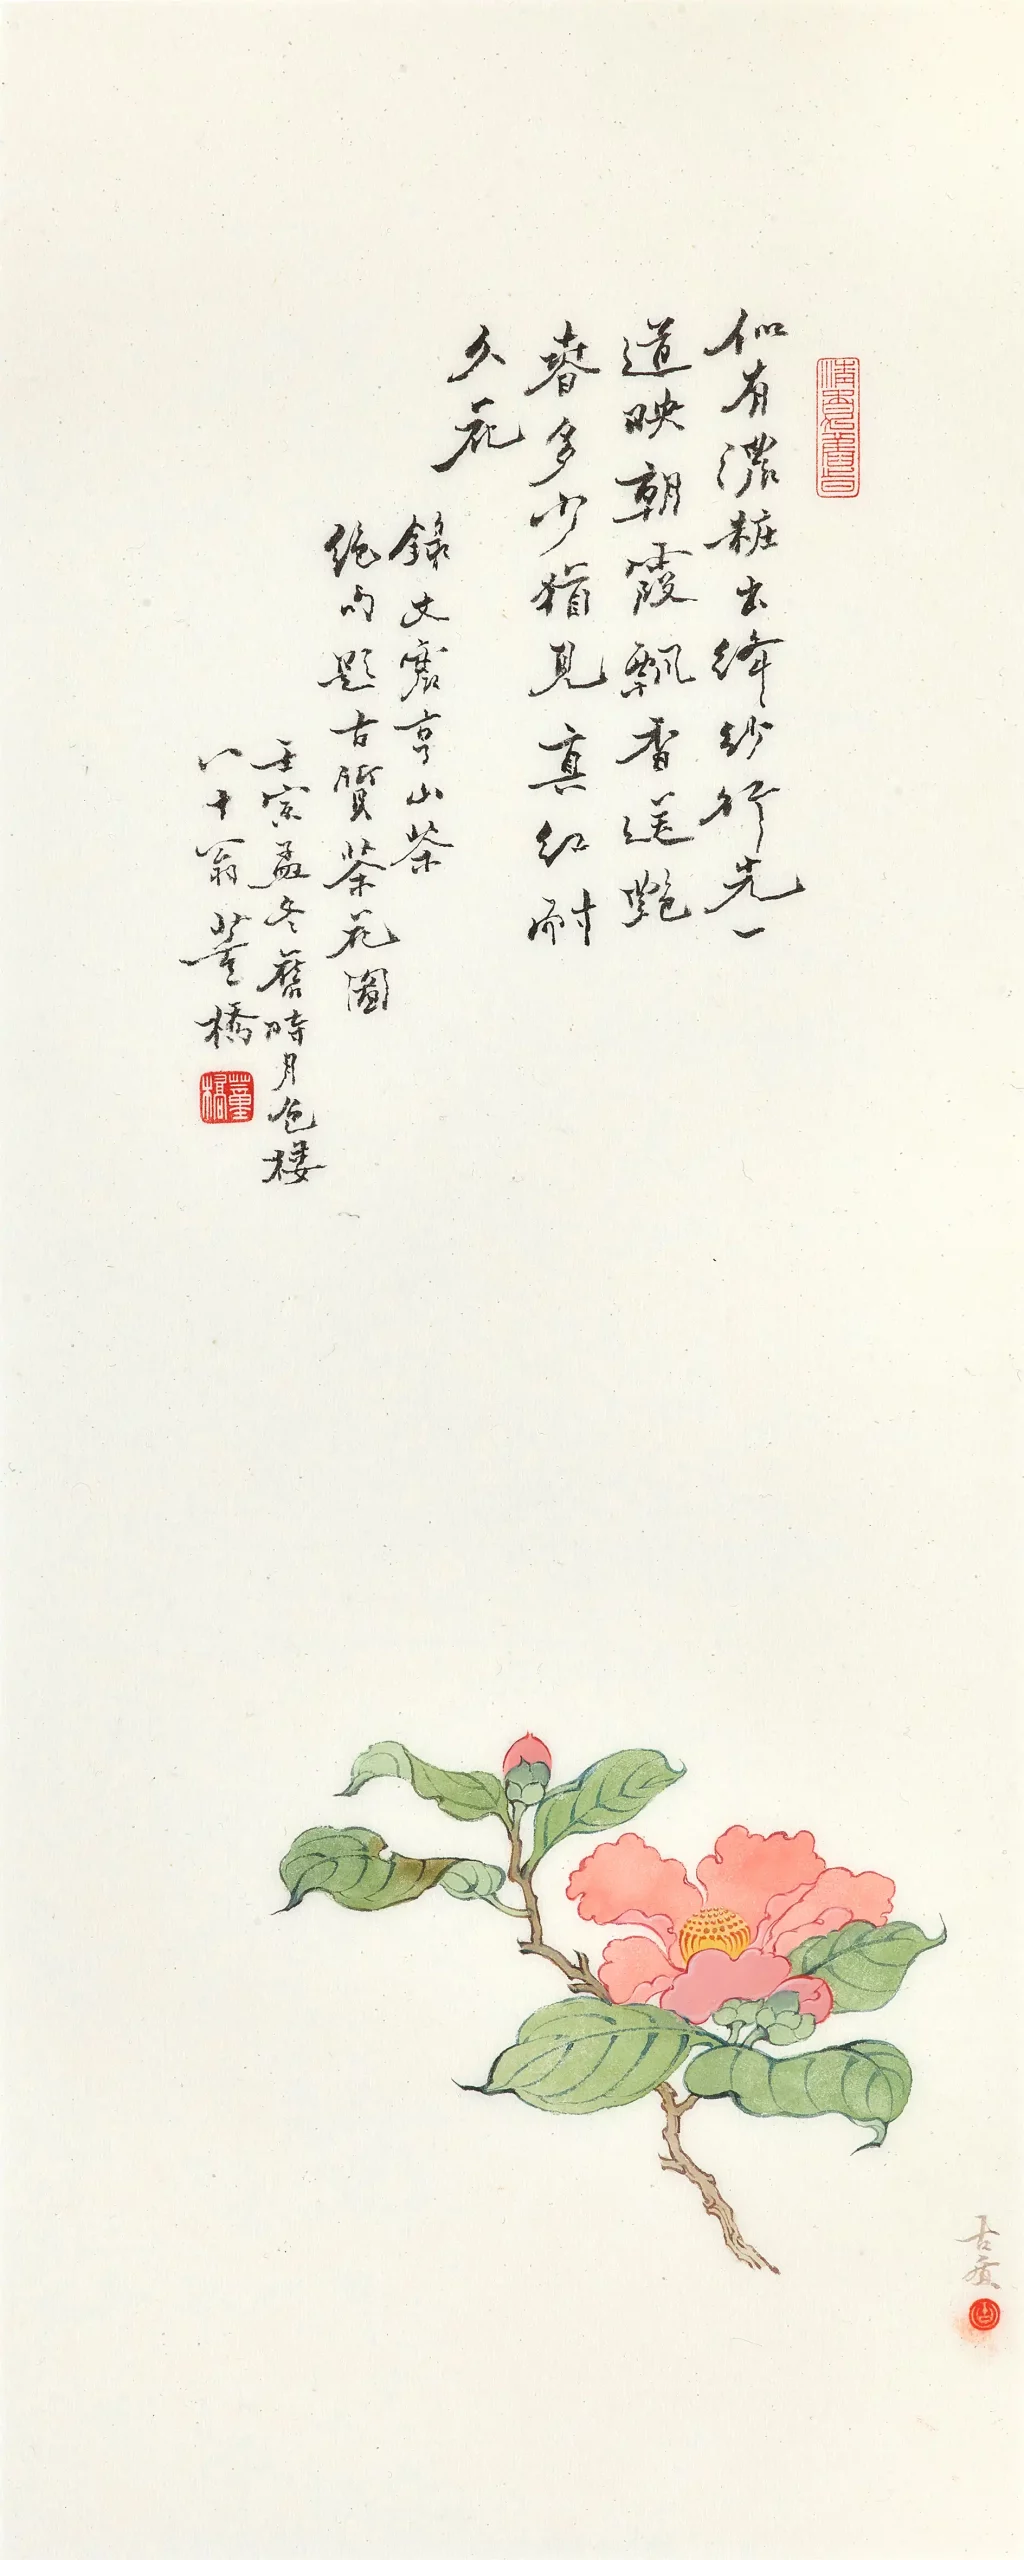 似有濃粧出絳紗行光一
道映朝霞飄香送艷
春多少猶見真紅耐
久花
錄文震亨山茶
絕句題古質茶花圖
壬寅孟冬舊時月色樓
八十翁董橋
董橋
古質